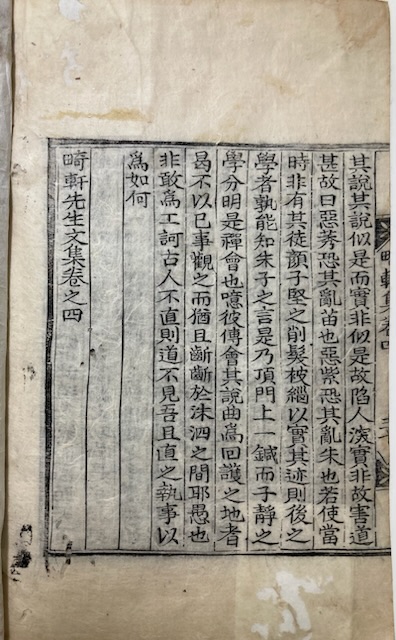 畸軒集卷四
其說其說似是而實非似是故陷人深實非故害道
甚故曰惡莠恐其亂苗也惡紫恐其亂朱也若使當
時非有其徒顏子堅之削髮被緇以實其迹則後之
學者孰能知朱子之言是乃頂門上一鍼而子靜之
學分明是禪會也噫彼傅會其說曲爲回護之地者
曷不以已事觀之而猶且斷斷於洙泗之間耶愚也
非敢爲工訶古人不直則道不見吾且直之執事以
爲如何
畸軒先生文集卷之四